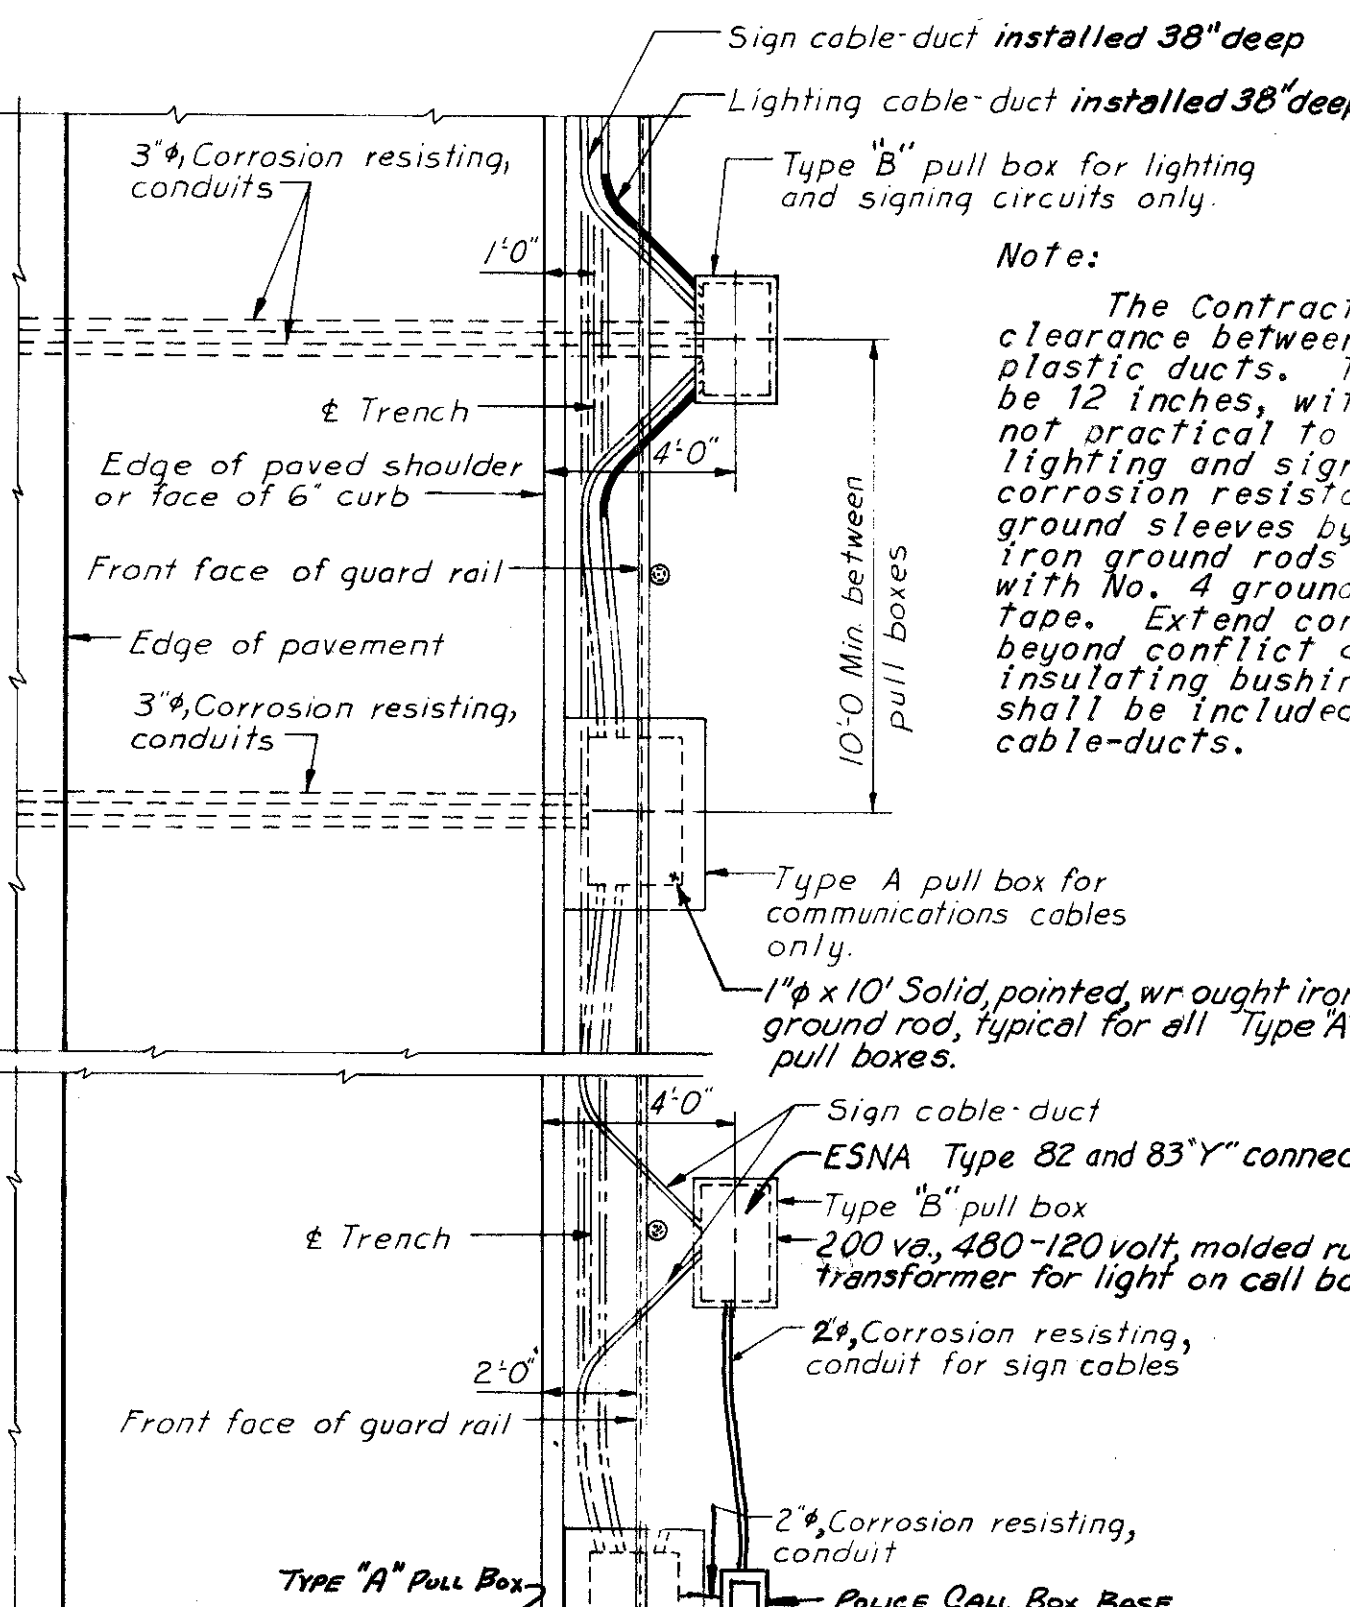 Sign cable-duct installed 38" deep
Lighting cable-duct installed 38" deep
3"φ, Corrosion resisting,
conduits
Type "B" pull box for lighting
and signing circuits only.
1'-0"
Note:
The Contract
clearance between
plastic ducts.
be 12 inches, wit
not practical to
lighting and sign
corrosion resista
ground sleeves by
iron ground rods
with No. 4 ground
tape. Extend con
beyond conflict
insulating bushin
shall be included
cable-ducts.
℄ Trench
4'-0"
Edge of paved shoulder
or face of 6" curb
Front face of guard rail
10'-0 Min. between
pull boxes
Edge of pavement
3"φ, Corrosion resisting,
conduits
Type A pull box for
communications cables
only.
1"φ x 10' Solid, pointed, wrought iron
ground rod, typical for all Type "A"
pull boxes.
4'-0"
Sign cable-duct
ESNA Type 82 and 83 "Y" connec
Type "B" pull box
℄ Trench
200 va., 480-120 volt, molded ru
transformer for light on call bo
2"φ, Corrosion resisting,
conduit for sign cables
2'-0"
Front face of guard rail
2"φ, Corrosion resisting,
conduit
TYPE "A" PULL BOX
POLICE CALL BOX BASE